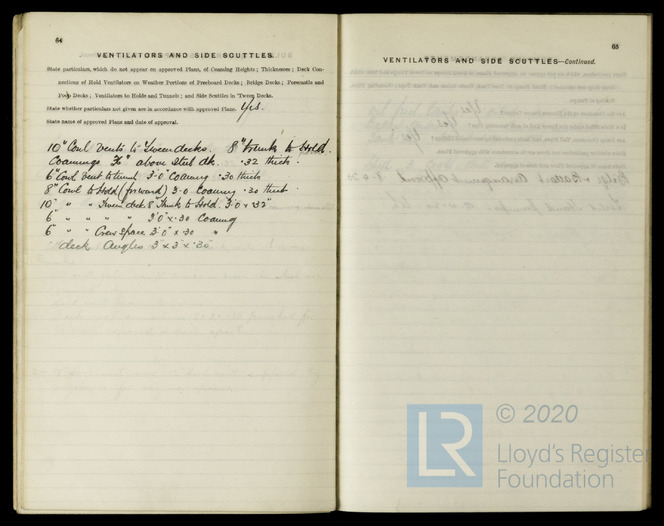 64
VENTILATORS AND SIDE SCUTTLES.
State particulars, which do not appear on approved Plans, of Coaming Heights; Thicknesses; Deck Con-
nections of Hold Ventilators on Weather Portions of Freeboard Decks; Bridge Decks; Forecastle and
Poop Decks; Ventilators to Holds and Tunnels; and Side Scuttles in 'Tween Decks.
State whether particulars not given are in accordance with approved Plans. Yes.
State name of approved Plans and date of approval.
10" Cowl Vents to Tween decks. 8" Trunk to Hold.
Coamings 36" above Steel dk. .32 thick.
6" Cowl Vent to tunnel 3'.0" Coaming .30 thick
8" Cowl to Hold (forward) 3.0 Coaming .30 thick
10" " " Tween deck 8" Trunk to Hold. 3'.0 x .32"
6" " " " " 3'.0" x .30 Coaming
6" " " Crew space 3'.0" x .30 "
deck Angles 3 x 3 x .30
65
VENTILATORS AND SIDE SCUTTLES—Continued.
© 2020
LR
Lloyd's Register
Foundation